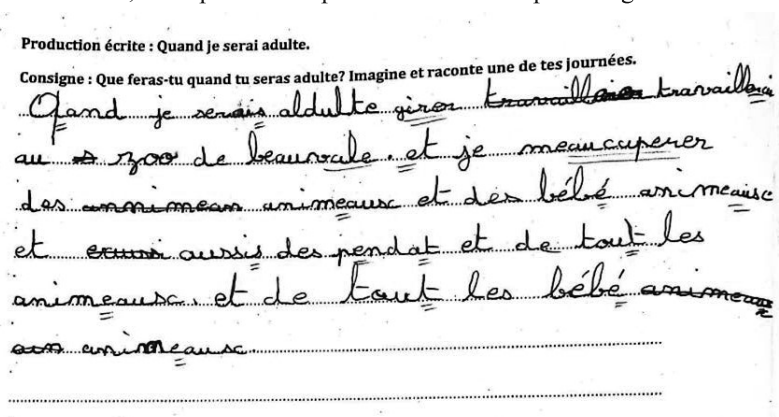 Production écrite : Quand je serai adulte.
Consigne : Que feras-tu quand tu seras adulte? Imagine et raconte une de tes journées.
Qand je serais aldulte girer travaillerai
au zoo de beauvale. et je meaucuperer
des animeausc et des bébé animeausc
et aussis des pendat et de tout les
animeausc. et de tout les bébé
animeausc